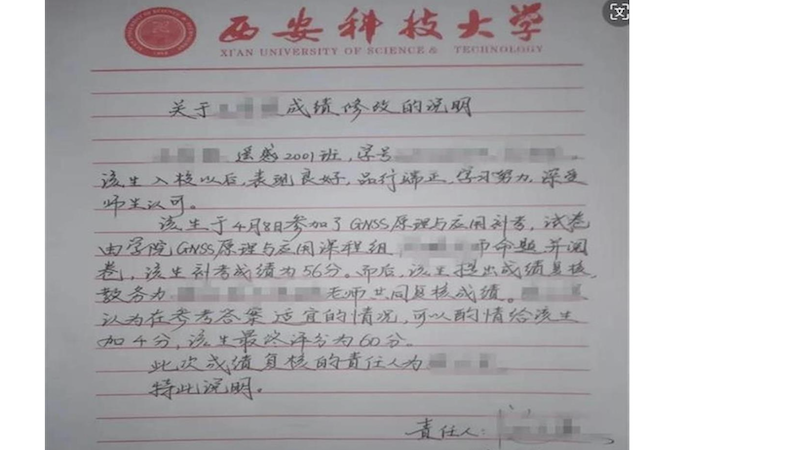 西安科技大学
XI'AN UNIVERSITY OF SCIENCE & TECHNOLOGY
关于 成绩修改的说明
遥感2001班，学号 。
该生入校以后，表现良好，品行端正，学习努力，深受
师生认可。
该生于4月8日参加了GNSS原理与应用补考，试卷
由学院GNSS原理与应用课程组 命题，并阅
卷，该生补考成绩为56分。而后，该生提出成绩复核，
教务办 老师共同复核成绩。
认为在参考答案适宜的情况，可以酌情给该生
加4分，该生最终评分为60分。
此次成绩复核的责任人为
特此说明。
责任人：